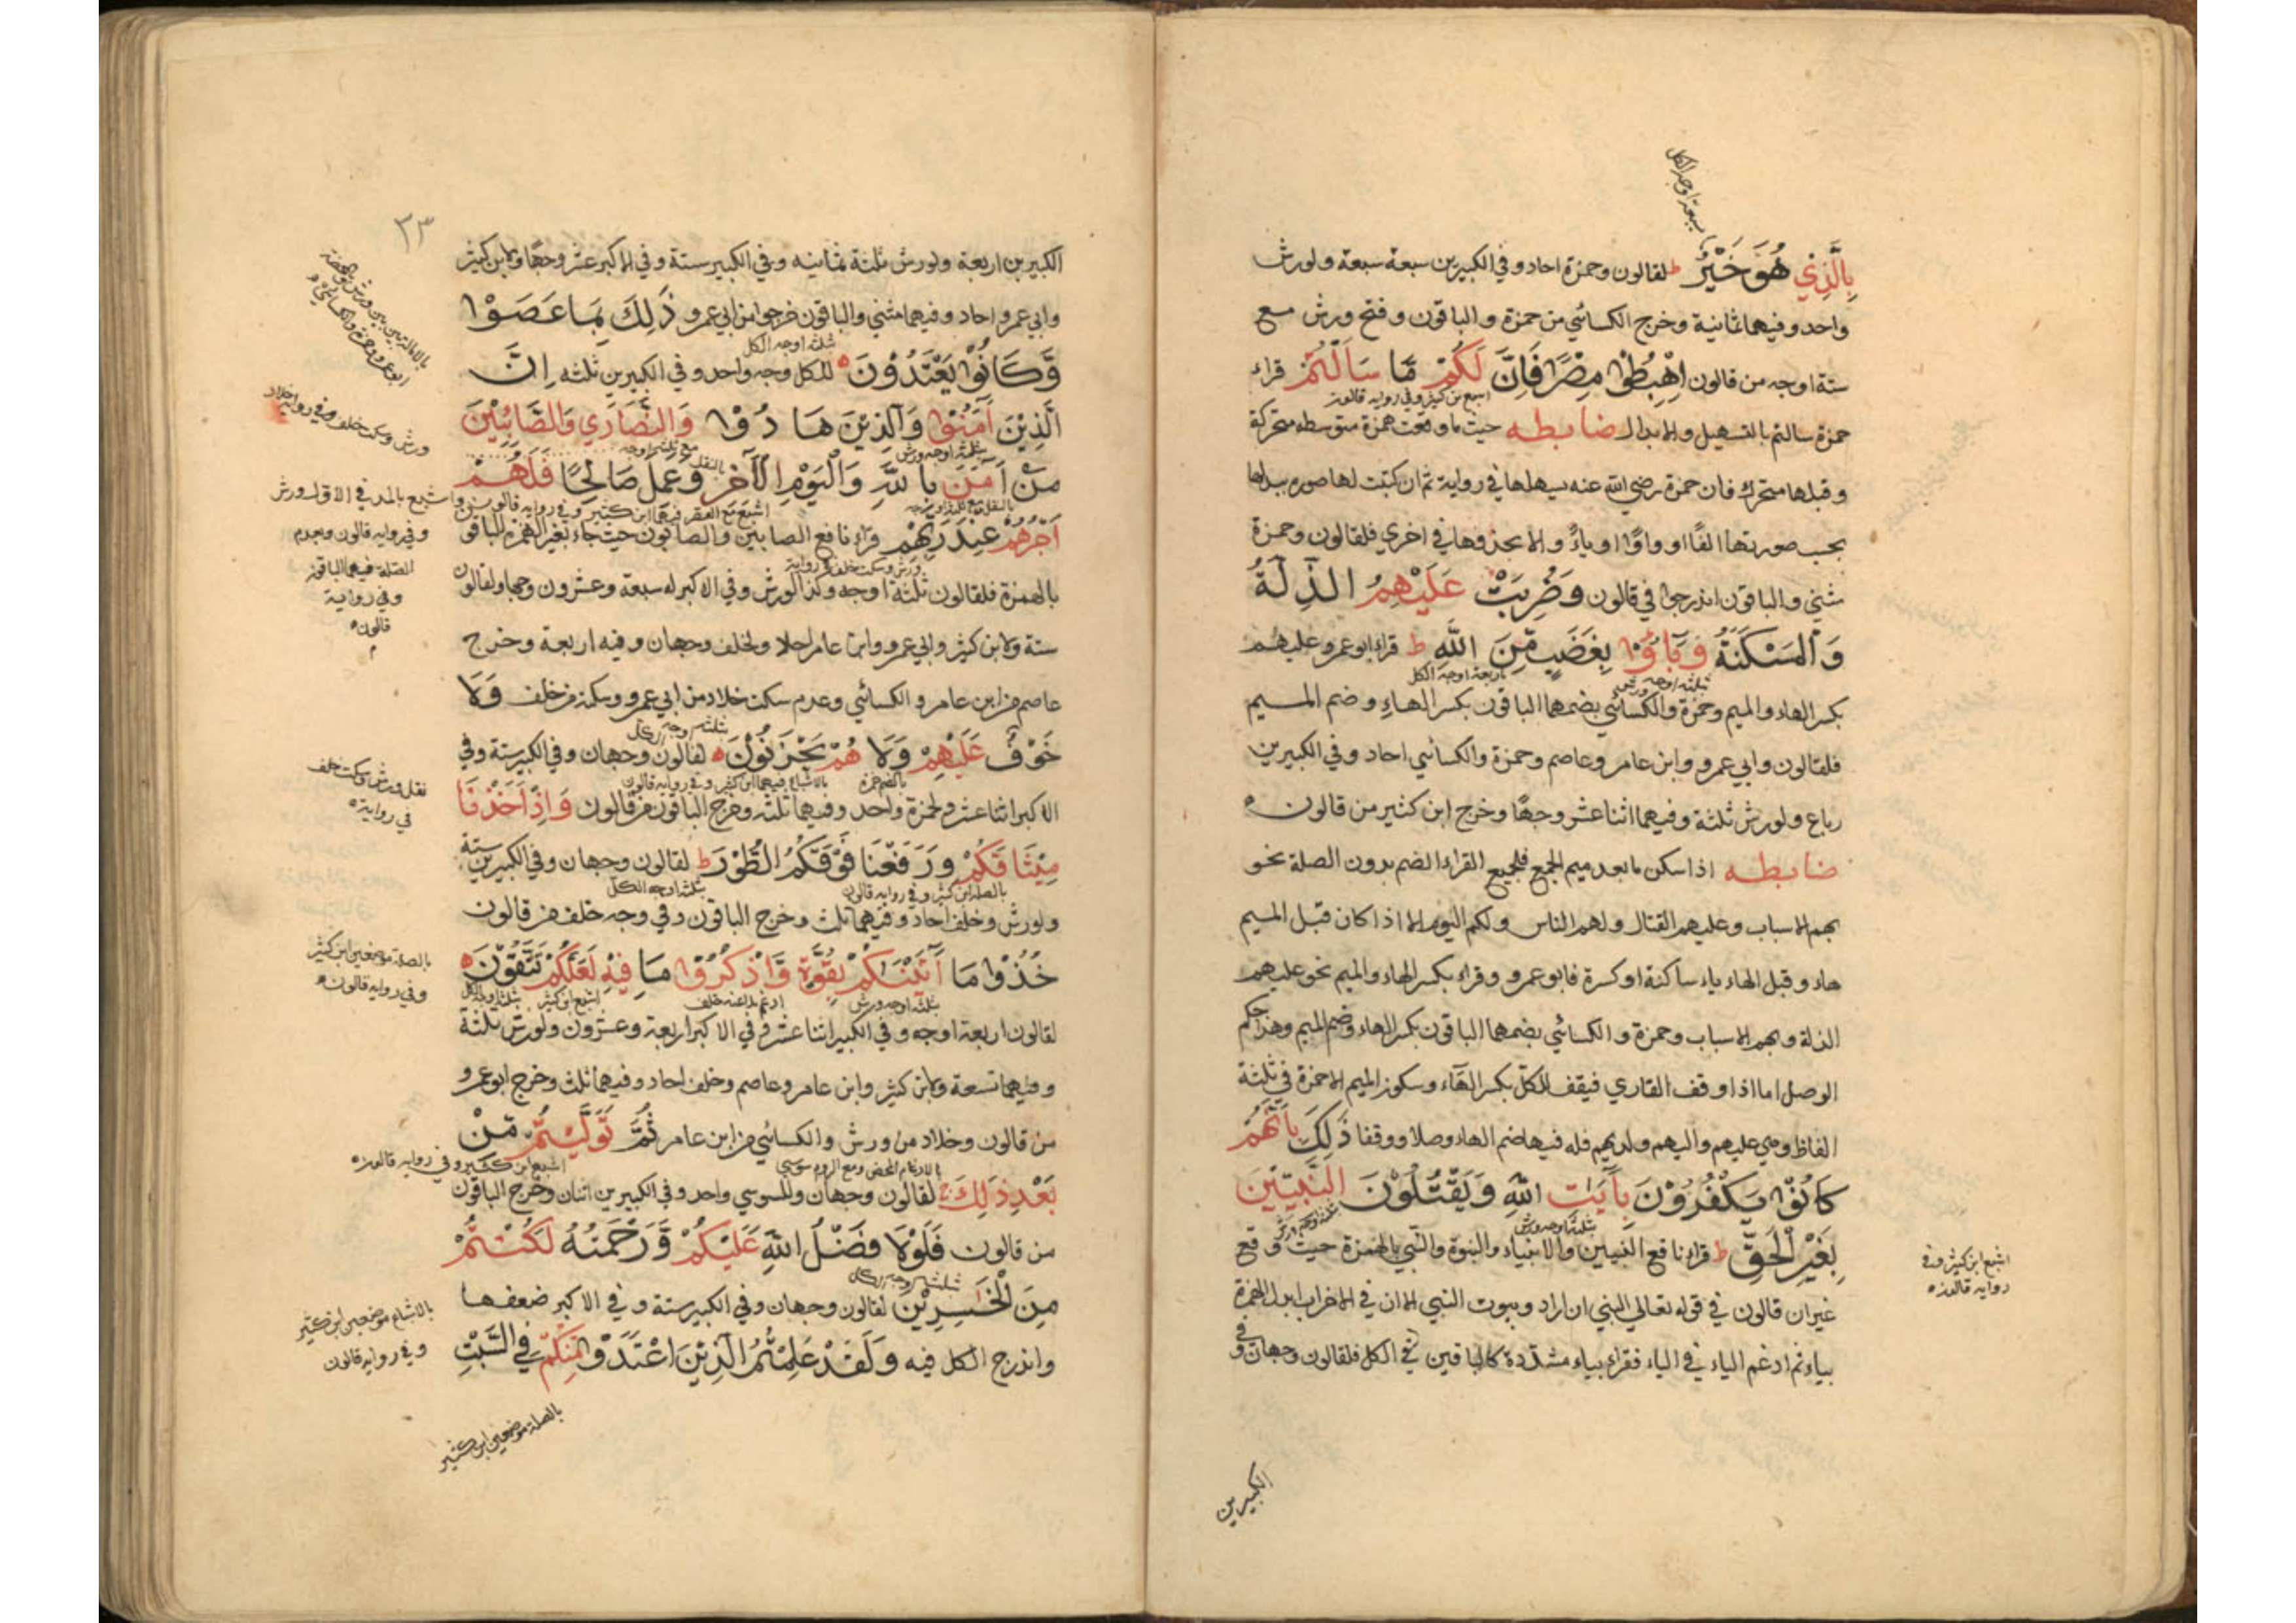 سبعة اوجه الكل
بِالَّذِي هُوَ خَيْرٌ ط لقالون وحمزة احاد وفي الكبيرين سبعة سبعة ولورش
واحد وفيهما ثمانية وخرج الكسائي من حمزة والباقون وفتح ورش مع
ستة اوجه من قالون اِهْبِطُوْا مِصْرًا فَاِنَّ لَكُمْ مَّا سَاَلْتُمْ قراء
اشبع بن كثير وفي رواية قالون
حمزة سالتم بالتسهيل والابدال ضابطه حيث ما وقعت همزة متوسطه متحركة
وقبلها متحرك فان حمزة رضي الله عنه يسهلها في رواية ثم ان كتبت لها صوره يبدلها
بحسب صورتها الفًا او واوًا او ياءً والا يحذفها في اخري فلقالون وحمزة
مثني والباقون اندرجوا في قالون وَضُرِبَتْ عَلَيْهِمُ الذِّلَّةُ
وَالْمَسْكَنَةُ وَبَآؤُا بِغَضَبٍ مِّنَ اللهِ ط قراء ابو عمرو عليهم
ثلثة اوجه ورش اربعة اوجه الكل
بكسر الهاء والميم وحمزة والكسائي بضمهما الباقون بكسر الهاء وضم الميم
فلقالون وابي عمرو وابن عامر وعاصم وحمزة والكسائي احاد وفي الكبيرين
رباع ولورش ثلثة وفيهما اثنا عشر وجهًا وخرج ابن كثير من قالون
ضابطه اذا سكن ما بعد ميم الجمع فلجميع القراء الضم بدون الصلة نحو
بهم الاسباب وعليهم القتال ولهم الناس ولكم اليوم الا اذا كان قبل الميم
هاء وقبل الهاء ياء ساكنة او كسرة فابو عمرو وقراء بكسر الهاء والميم نحو عليهم
الذلة وبهم الاسباب وحمزة والكسائي بضمهما الباقون بكسر الهاء وضم الميم وهذا حكم
الوصل اما اذا وقف القاري فيقف للكل بكسر الهاء وسكون الميم الا حمزة في ثلثة
الفاظ وهي عليهم واليهم ولديهم فله فيها ضم الهاء وصلا ووقفا ذٰلِكَ بِاَنَّهُمْ
كَانُوْا يَكْفُرُوْنَ بِاٰيٰتِ اللهِ وَيَقْتُلُوْنَ النَّبِيّٖنَ
ثلثة اوجه ورش ثلثة اوجه ورش
بِغَيْرِ الْحَقِّ ط قراء نافع النبيين والانبياء والنبوة والنبي بالهمزة حيث وقع
غير ان قالون في قوله تعالي للنبي ان اراد وبيوت النبي الا ان في الاحزاب ابدل الهمزة
بياء ثم ادغم الياء في الياء فقراء بياء مشددة كالباقين في الكل فلقالون وجهان وفي
اشبع ابن كثير وفي
رواية قالون
الكبيرين
٢٣
الكبيرين اربعة ولورش ثلثة ثمانيه وفي الكبير ستة وفي الاكبر عشر وجهًا ولابن كثير
وابي عمرو احاد وفيهما مثني والباقون خرجوا من ابي عمرو ذٰلِكَ بِمَا عَصَوْا
ثلثه اوجه الكل
وَّكَانُوْا يَعْتَدُوْنَ للكل وجه واحد وفي الكبيرين ثلثه اِنَّ
الَّذِيْنَ اٰمَنُوْا وَالَّذِيْنَ هَادُوْا وَالنَّصَارٰي وَالصَّابِئِيْنَ
ثلثة اوجه ورش
مَنْ اٰمَنَ بِاللهِ وَالْيَوْمِ الْاٰخِرِ وَعَمِلَ صَالِحًا فَلَهُمْ
اَجْرُهُمْ عِنْدَ رَبِّهِمْ قراء نافع الصابين والصابون حيث جاء بغير الهمزة الباقو
ورش وسكت خلف في رواية
بالهمزة فلقالون ثلثة اوجه وكذا لورش وفي الاكبر له سبعة وعشرون وجها ولقالون
ستة ولابن كثير وابي عمرو وابن عامر احاد ولخلف وجهان وفيه اربعة وخرج
عاصم من ابن عامر والكسائي وعدم سكت خلاد من ابي عمرو وسكته من خلف وَلَا
ثلثه اوجه الكل
خَوْفٌ عَلَيْهِمْ وَلَا هُمْ يَحْزَنُوْنَ لقالون وجهان وفي الكبير ستة وفي
بالضم حمزة بالاشباع فيهما ابن كثير وفي رواية قالون
الاكبر اثنا عشر ولحمزة واحد وفيهما ثلثه وخرج الباقون من قالون وَاِذْ اَخَذْنَا
مِيْثَاقَكُمْ وَرَفَعْنَا فَوْقَكُمُ الطُّوْرَ ط لقالون وجهان وفي الكبيرين ستة
بالصلة ابن كثير وفي رواية قالون ثلثة اوجه الكل
ولورش وخلف احاد وفيهما ثلث وخرج الباقون وفي وجه خلف من قالون
خُذُوْا مَا اٰتَيْنٰكُمْ بِقُوَّةٍ وَّاذْكُرُوْا مَا فِيْهِ لَعَلَّكُمْ تَتَّقُوْنَ
ثلثه اوجه ورش ادغم بلا غنه خلف اشبع ابن كثير ثلثة اوجه الكل
لقالون اربعة اوجه وفي الكبير اثنا عشر وفي الاكبر اربعة وعشرون ولورش ثلثة
وفيهما تسعة ولابن كثير وابن عامر وعاصم وخلف احاد وفيهما ثلث وخرج ابو عمرو
من قالون وخلاد من ورش والكسائي من ابن عامر ثُمَّ تَوَلَّيْتُمْ مِّنْ
بالادغام المحض ومع الروم سوسي اشبع ابن كثير وفي رواية قالون
بَعْدِ ذٰلِكَ لقالون وجهان وللسوسي واحد وفي الكبيرين اثنان وخرج الباقون
من قالون فَلَوْلَا فَضْلُ اللهِ عَلَيْكُمْ وَرَحْمَتُهُ لَكُنْتُمْ
ثلثه اوجه الكل
مِنَ الْخٰسِرِيْنَ لقالون وجهان وفي الكبير ستة وفي الاكبر ضعفها
واندرج الكل فيه وَلَقَدْ عَلِمْتُمُ الَّذِيْنَ اعْتَدَوْا مِنْكُمْ فِي السَّبْتِ
ورش وسكت خلف وفي رواية خلاد
واشبع بالمد في الاول ورش
وفي رواية قالون وبعدم
الصلة فيهما الباقون
وفي رواية
قالون
نقل ورش وسكت خلف
في رواية
بالصلة موضعين ابن كثير
وفي رواية قالون
بالاشباع موضعين ابن كثير
وفي رواية قالون
بالصلة موضعين ابن كثير